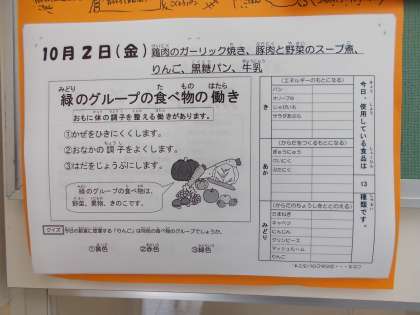 10月2日(金) 鶏肉のガーリック焼き、豚肉と野菜のスープ煮、
りんご、黒糖パン、牛乳
緑のグループの食べ物の働き
おもに体の調子を整える働きがあります。
①かぜをひきにくくします。
②おなかの調子をよくします。
③はだをじょうぶにします。
緑のグループの食べ物は、
野菜、果物、きのこです。
クイズ 今日の給食に登場する「りんご」は何色の食べ物のグループでしょうか。
①黄色 ②赤色 ③緑色
今日、使用している食品は 13 種類です。
き
(エネルギーのもとになる)
パン
オリーブ油
じゃがいも
あか
(からだをつくるもとになる)
ぎゅうにゅう
とりにく
ぶたにく
みどり
(からだのちょうしをととのえる)
たまねぎ
キャベツ
にんじん
グリンピース
マッシュルーム
りんご